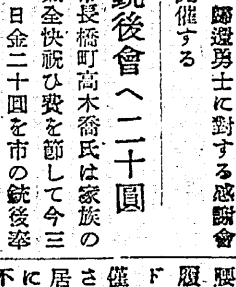 歸還勇士に對する感謝會
開催する
銃後會へ二十圓
長橋町高木喬氏は家族の
全快祝ひ費を節して今三
日金二十圓を市の銃後奉
腰
履
ド
催
さ
居
に
不